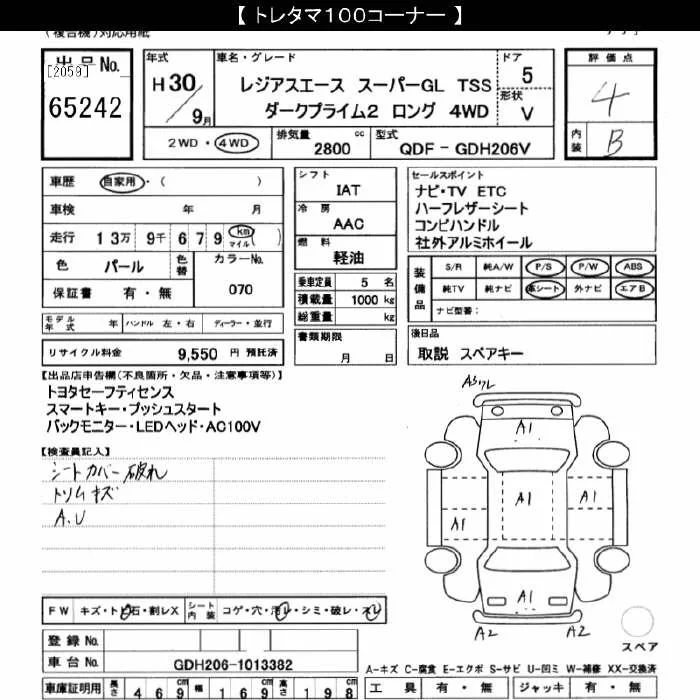 【 トレタマ１００コーナー 】
(複合機)対応用紙
出品No.
[2059]
65242
年式
H30/9月
車名・グレード
レジアスエース スーパーGL TSS
ダークプライム2 ロング 4WD
ドア
5
形状
V
評価点
4
内装
B
2WD・4WD
排気量
2800 cc
型式
QDF - GDH206V
車歴 自家用・( )
車検 年 月
走行 13万 9千 679 km マイル( )
色 パール
色替
カラーNo.
070
保証書 有・無
シフト
IAT
冷房
AAC
燃料
軽油
乗車定員 5 名
積載量 1000 kg
総重量 kg
書類期限
月 日
セールスポイント
ナビ・TV ETC
ハーフレザーシート
コンビハンドル
社外アルミホイール
装備品
S/R 純A/W P/S P/W ABS
純TV 純ナビ 革シート 外ナビ エアB
ナビ型番：
後日品
取説 スペアキー
モデル年式 年 ハンドル 左・右 ディーラー・並行
リサイクル料金 9,550 円 預託済
【出品店申告欄(不良箇所・欠品・注意事項等)】
トヨタセーフティセンス
スマートキー・プッシュスタート
バックモニター・LEDヘッド・AC100V
【検査員記入】
シートカバー破れ
トリムキズ
A.U
A3ワレ
A1
A1
A1
A1
A1
A2
A2
スペア
FW キズ・トビ石・割レX
シート内装 コゲ・穴・汚レ・シミ・破レ・スレ
登録No.
車台No. GDH206-1013382
A-キズ C-腐食 E-エクボ S-サビ U-凹ミ W-補修 XX-交換済
車庫証明用 長さ 469 cm 幅 169 cm 高さ 198 cm
工具 有・無 ジャッキ 有・無